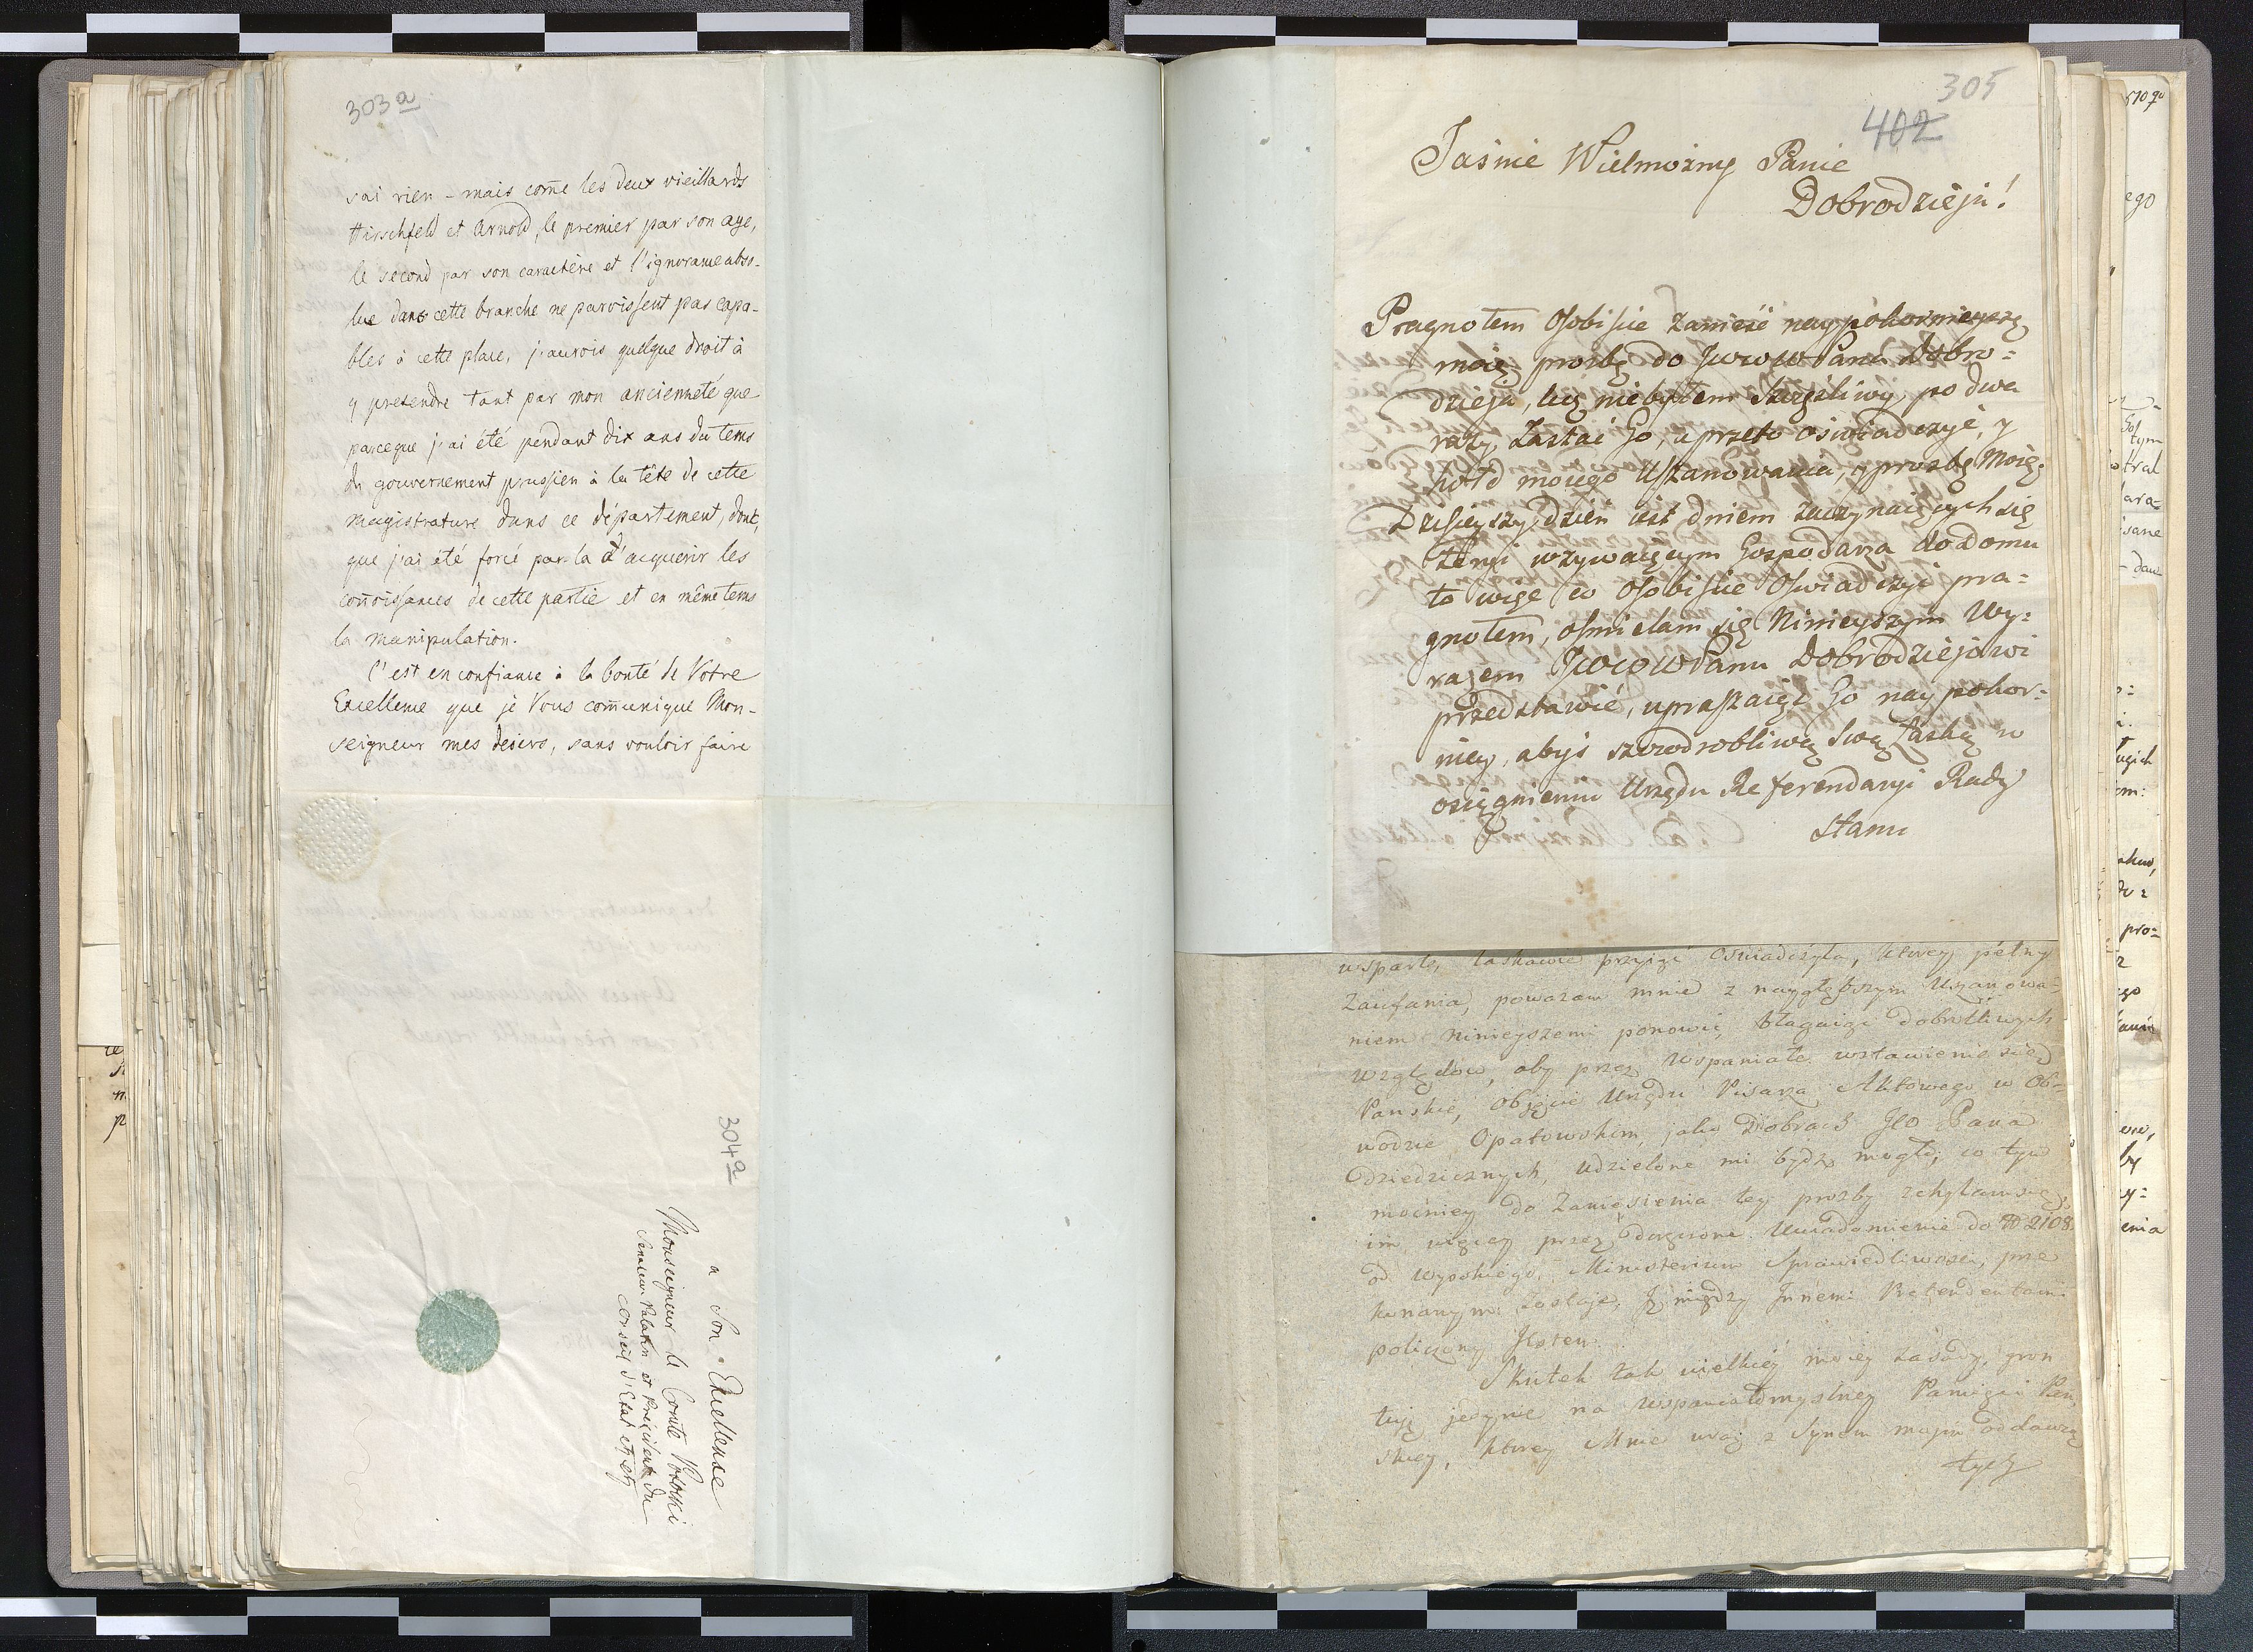 303a
sai rien - mais com̄e les deux vieillards
Hirschfeld et Arnold, le premier par son age,
le second par son caractère et l'ignorance abso-
lue dans cette branche ne paroissent pas capa-
bles à cette place, j'aurois quelque droit à
y pretendre tant par mon ancienneté que
parceque j'ai été pendant dix ans du tems
du gouvernement prussien à la tête de cette
magistrature dans ce département, dont,
que j'ai été forcé par-la d'acquerir les
con̄oissances de cette partie et en même tems
la manipulation.
C'est en confiance à la bonté de Votre
Excellence que je Vous com̄unique Mon-
seigneur mes desirs, sans vouloir faire
304a
a Son Excellence
Monseigneur le Comte Potocki
Senateur Palatin et Président du
Conseil d'Etat etc etc
305
402
Jaśnie Wielmożny Panie
Dobrodzieju!
Pragnołem Osobiście Zanieść naypokornieyszą
moię prośbę do JWWPana Dobro=
dzieja, lecz niebyłem Szczęśliwy po dwa
razy Zastać Go, a przeto oświadczyć, y
hołd moiego Uszanowania, y prozbę Moię.
Dzisieyszy dzień iest dniem zaczynaiących się
Żeni wzywaiącym Gospodarza do Domu
to więc co Osobiście Oświadczyć pra=
gnołem, ośmielam się Ninieyszym Wy=
razem JWWPanu Dobrodziejowi
przedstawić, upraszaiąc Go naypokor=
niey, abyś szczodrobliwą Swą Łaską w
osiągnieniu Urzędu Referendaryi Rady
Stanu
wsparte, łaskawie przyiąć oświadczyła, ktorey pełny
Zaufania, poważam mnie z naygłębszym Uszanowa=
niem ninieyszem ponowić, błagaiąc dobrotliwych
względow, aby przez Wspaniałe wstawienie się
Panskie, Objęcie Urzędu Pisarza Aktowego w Ob=
wodzie Opatowskim, jako Dobrach JEO Pana
Dziedzicznych, udzielone mi bydź mogło; co tym
mocniey do Zaniesienia tey prozby
im więcey przez doręczone Uwiadomienie do N 2108.
od Wysokiego Ministerium Sprawiedliwości, prze
konanym Zostaję, Iż między Innemi Pretendentami
policzony Jestem.
Skutek tak wielkiey moiey zasady, grun
tuję jedynie na Wspaniałomyślney Pamięci Pan
skiey, ktorey Mnie wraz z Synem moim oddawszy
tych